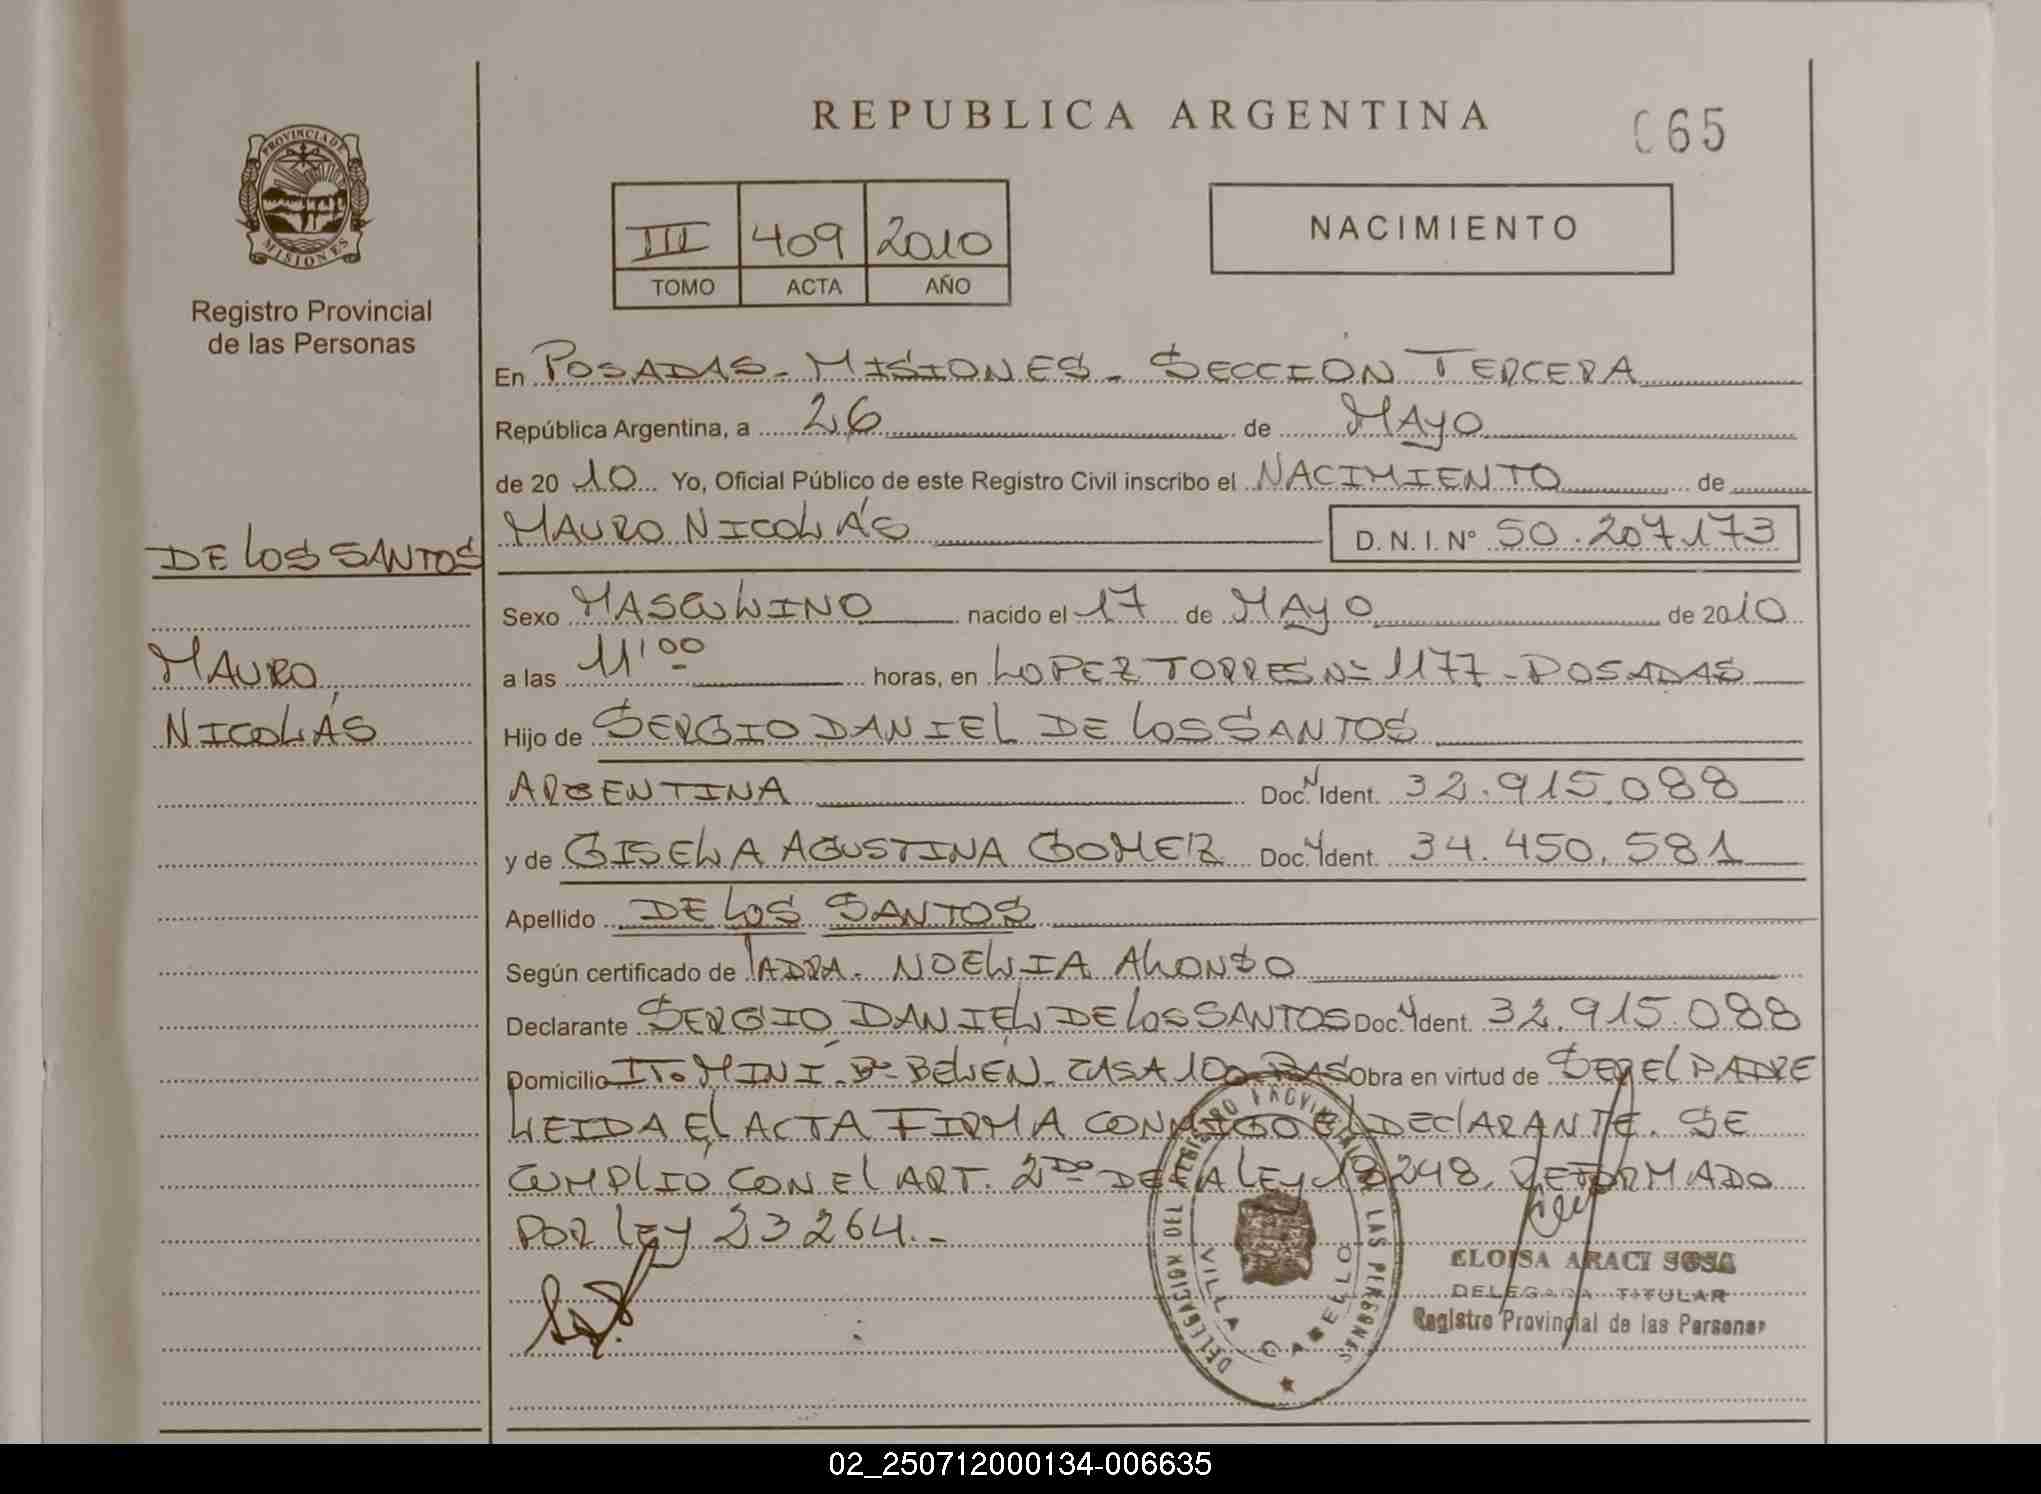 REPUBLICA ARGENTINA
065
PROVINCIA DE
MISIONES
Registro Provincial
de las Personas
III 409 2010
TOMO ACTA AÑO
NACIMIENTO
En POSADAS - MISIONES - SECCIÓN TERCERA
República Argentina, a 26 de MAYO
de 20 10 Yo, Oficial Público de este Registro Civil inscribo el NACIMIENTO de
MAURO NICOLÁS D.N.I. Nº 50.207.173
DE LOS SANTOS
MAURO
NICOLÁS
Sexo MASCULINO nacido el 17 de MAYO de 2010
a las 11'00 horas, en LOPEZ TORRES Nº 1177 - POSADAS
Hijo de SERGIO DANIEL DE LOS SANTOS
ARGENTINA Doc. N Ident. 32.915.088
y de GISELA AGUSTINA GOMEZ Doc. Ident. 34.450.581
Apellido DE LOS SANTOS
Según certificado de NOELIA ALONSO
Declarante SERGIO DANIEL DE LOS SANTOS Doc. Ident. 32.915.088
Domicilio ITº MINÍ - Bº BELEN - CASA 100 - PAS Obra en virtud de SER EL PADRE
LEIDA EL ACTA FIRMA CONMIGO EL DECLARANTE. SE
CUMPLIO CON EL ART. 2DO DE LA LEY 18248, REFORMADO
POR LEY 23264.-
DELEGACION DEL REGISTRO PROVINCIAL DE LAS PERSONAS
VILLA CABELLO
ELOISA ARACI SOSA
DELEGADA TITULAR
Registro Provincial de las Personas
02_250712000134-006635